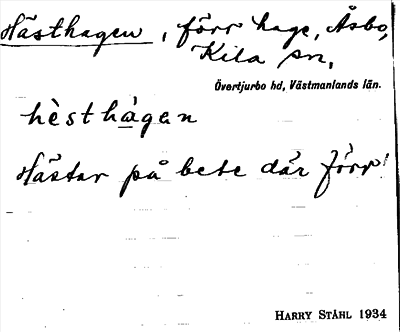 Hästhagen, förr hage, Åsbo,
Kila sn,
Övertjurbo hd, Västmanlands län.
hèsthàgen
Hästar på bete där förr!
HARRY STÅHL 1934